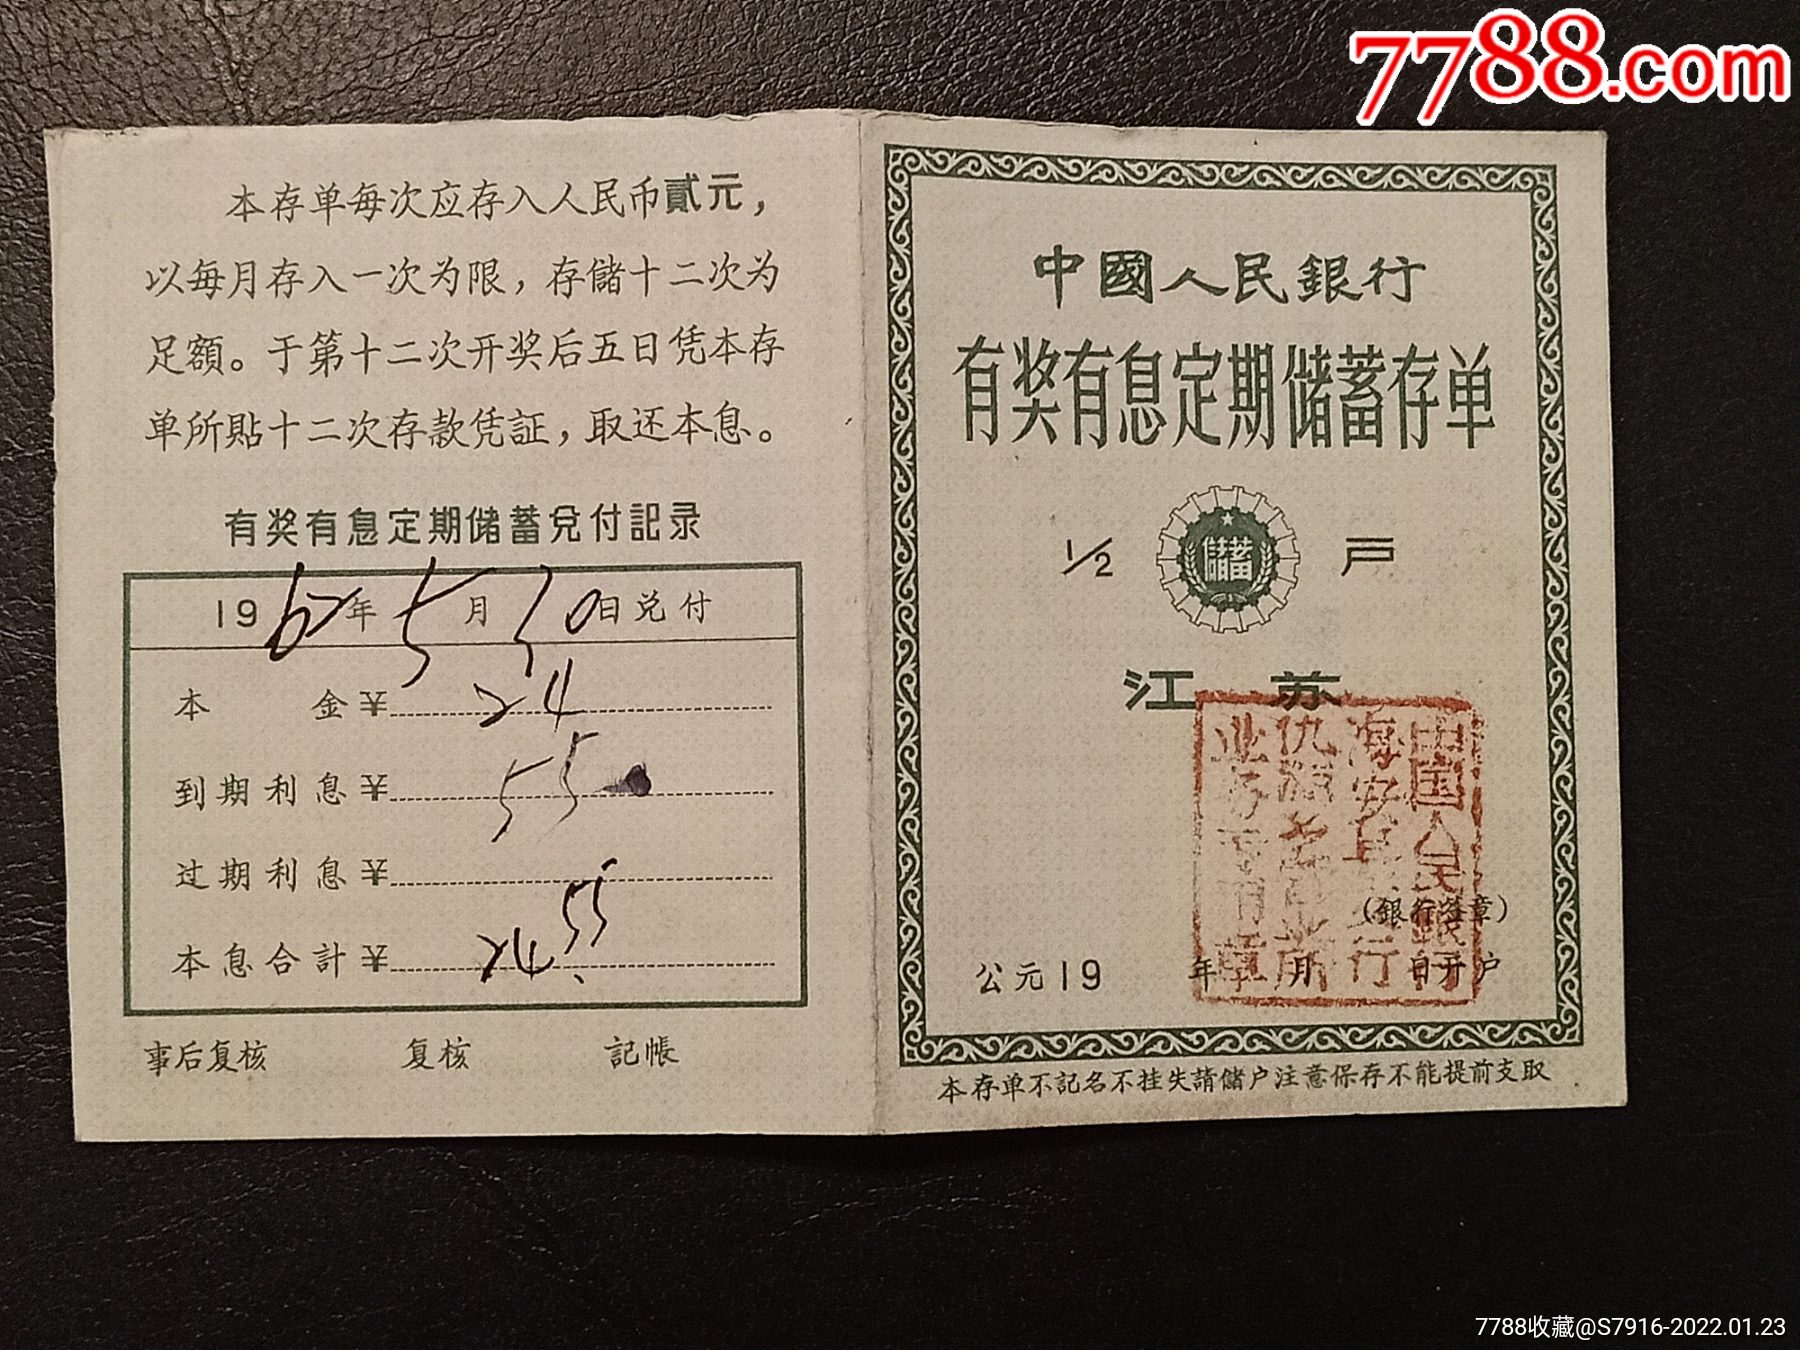 7788.com
本存单每次应存入人民币貳元，
以每月存入一次为限，存儲十二次为
足額。于第十二次开奖后五日凭本存
单所貼十二次存款凭証，取还本息。
有奖有息定期储蓄兑付記录
1962年5月30日兑付
本金¥ 24
到期利息¥ 55
过期利息¥
本息合計¥ 24.55
事后复核 复核 記帳
中國人民銀行
有奖有息定期储蓄存单
1/2 儲蓄 戸
江苏
中国人民銀行
海安县 行
仇湖 业所
业务专用章
（銀行签章）
公元19 年 月 日开户
本存单不記名不挂失請儲户注意保存不能提前支取
7788收藏@S7916-2022.01.23